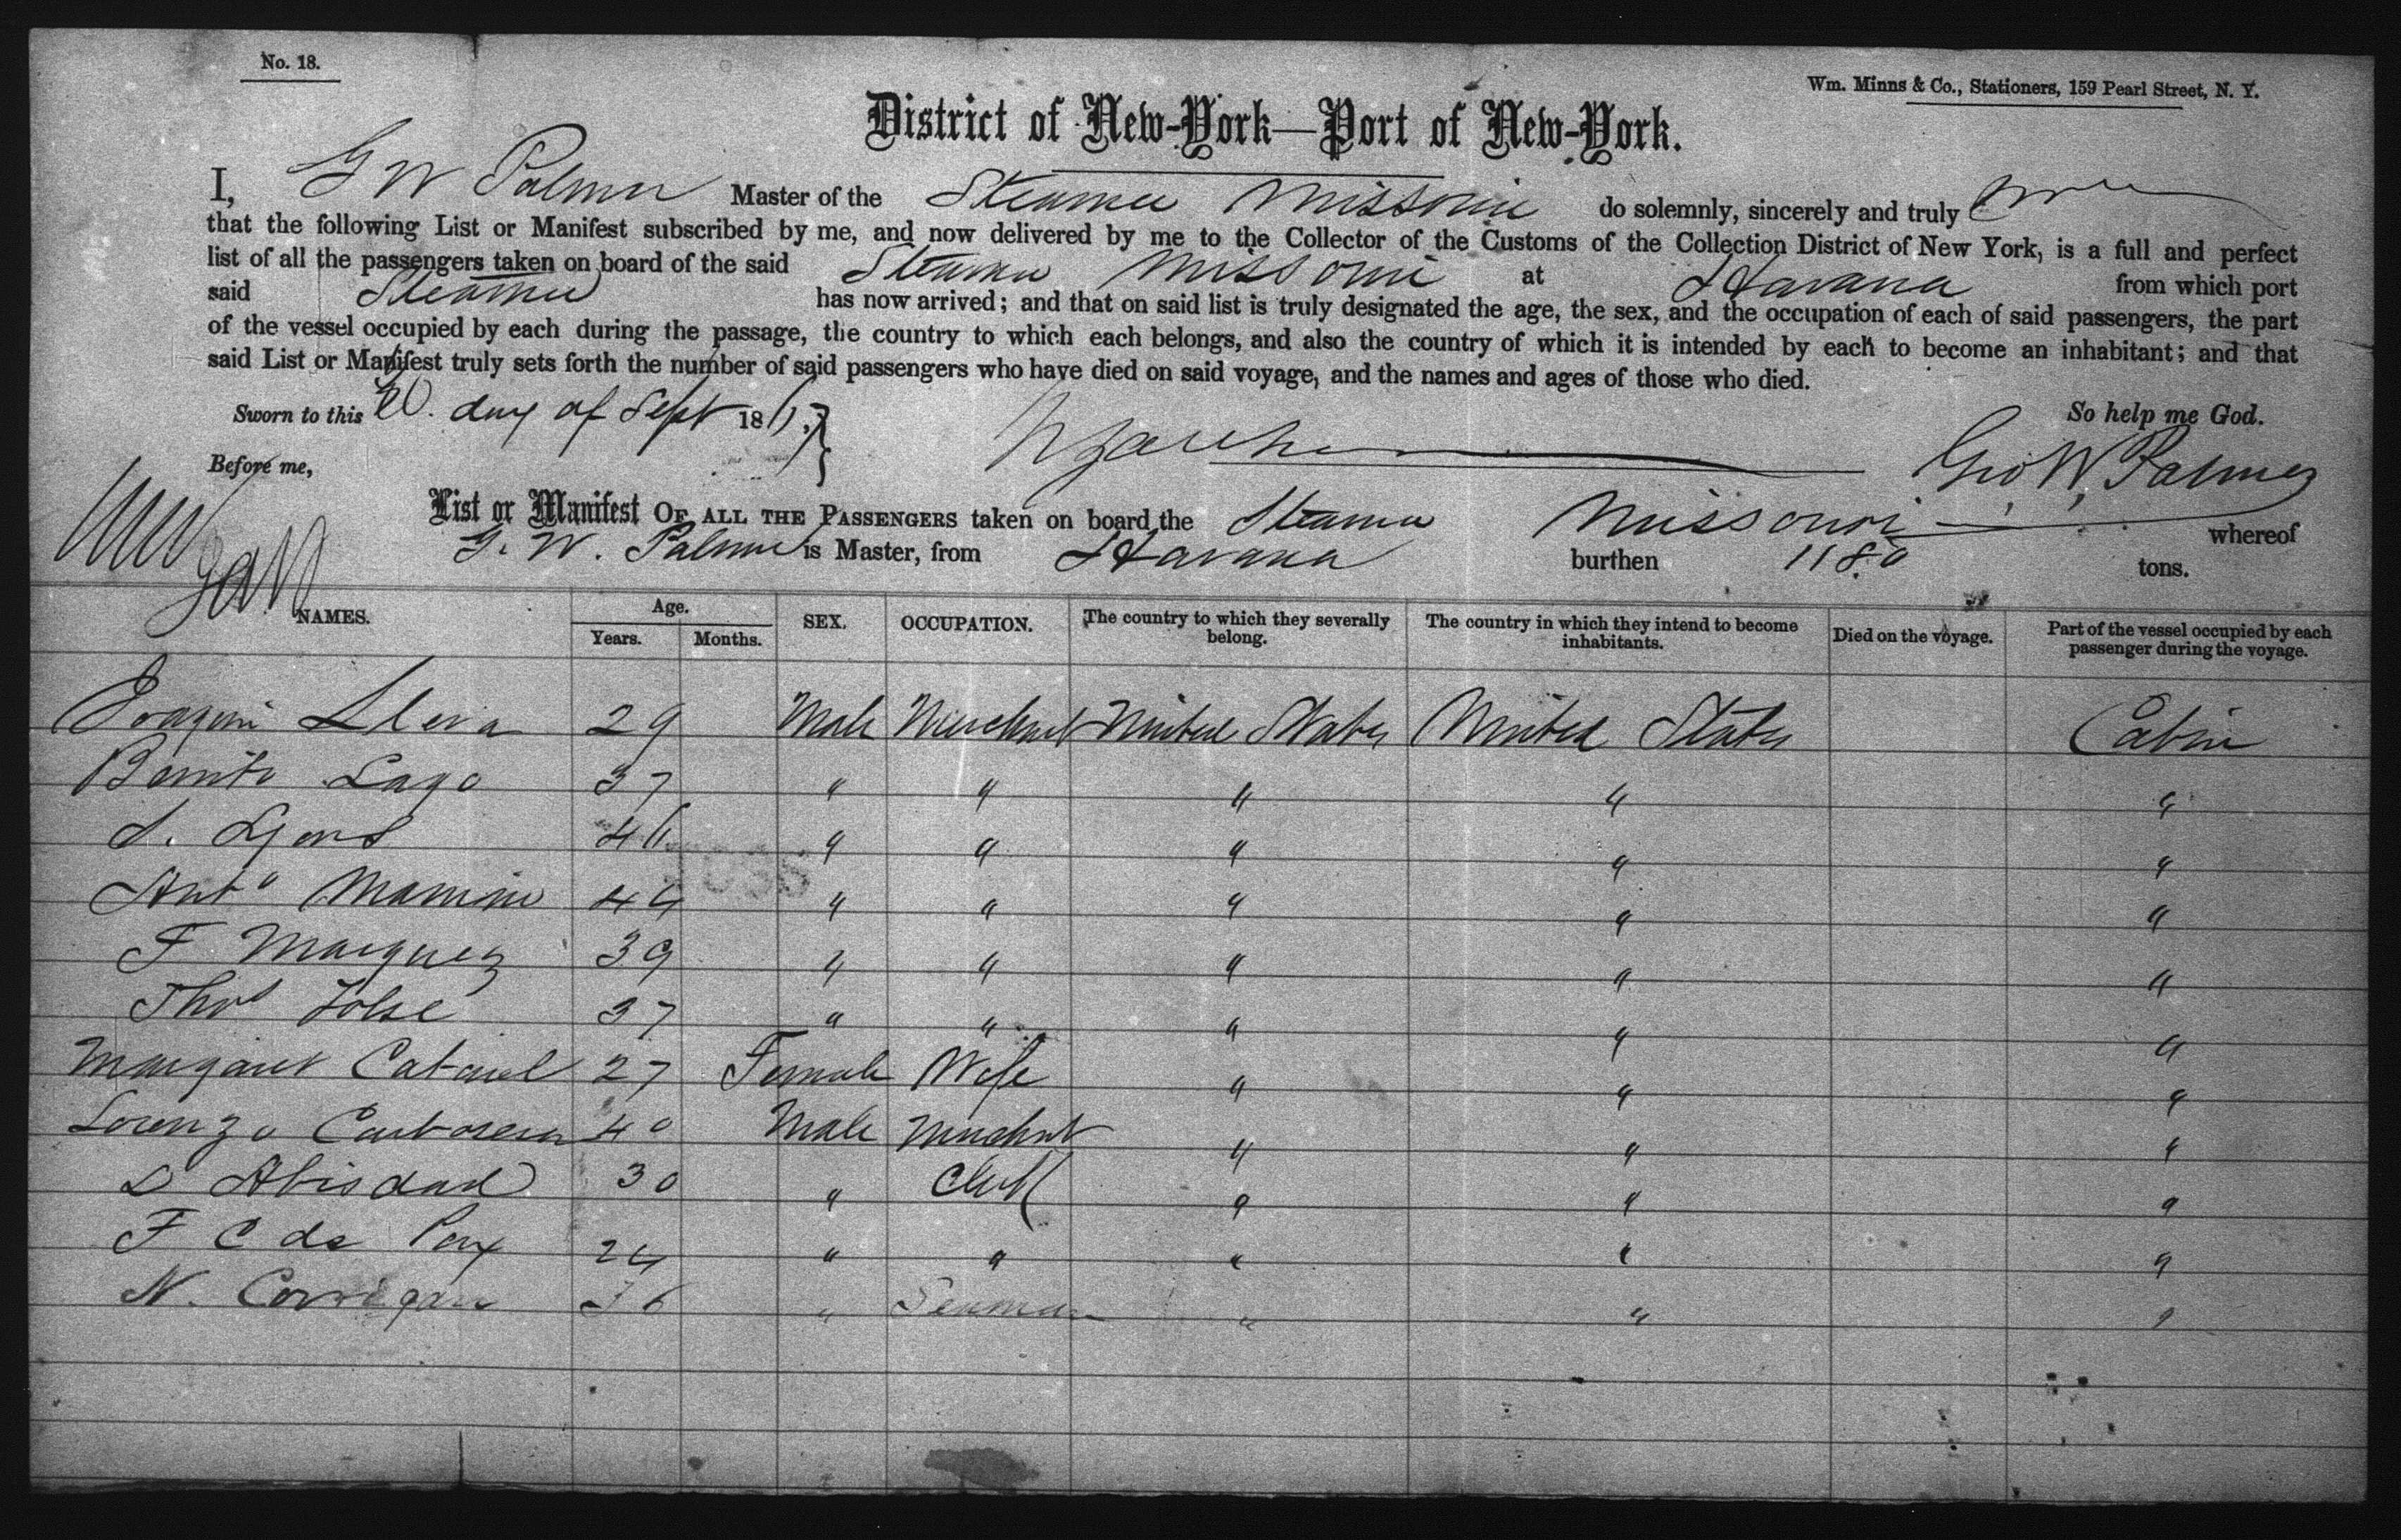 No. 18.
Wm. Minns & Co., Stationers, 159 Pearl Street, N. Y.
District of New-York—Port of New-York.
I, G W Palmer Master of the Steamer Missouri do solemnly, sincerely and truly
that the following List or Manifest subscribed by me, and now delivered by me to the Collector of the Customs of the Collection District of New York, is a full and perfect
list of all the passengers taken on board of the said Steamer Missouri at Havana from which port
said Steamer has now arrived; and that on said list is truly designated the age, the sex, and the occupation of each of said passengers, the part
of the vessel occupied by each during the passage, the country to which each belongs, and also the country of which it is intended by each to become an inhabitant; and that
said List or Manifest truly sets forth the number of said passengers who have died on said voyage, and the names and ages of those who died.
Sworn to this 20. day of Sept 186
So help me God.
Before me,
Geo W, Palmer
List or Manifest OF ALL THE PASSENGERS taken on board the Steamer Missouri whereof
G. W. Palmer is Master, from Havana burthen 1180 tons.
NAMES. Age. Years. Months. SEX. OCCUPATION. The country to which they severally belong. The country in which they intend to become inhabitants. Died on the voyage. Part of the vessel occupied by each passenger during the voyage.
Llera 29 Male Merchant United States United States Cabin
Benito Lago 37 " " " " "
Lyons 46 " " " " "
Anto 44 " " " " "
F Marquez 39 " " " " "
Thos 37 " " " " "
Margaret 27 Female Wife " " "
Lorenzo 40 Male Merchant " " "
Abisdad 30 " Clerk " " "
F C de 24 " " " " "
N. Corrigan 36 " Seaman " " "